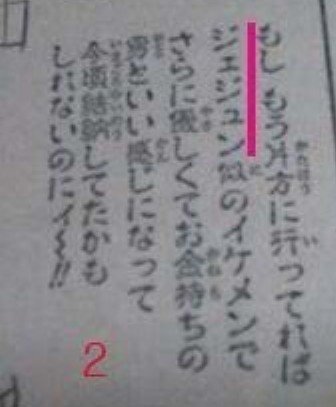 もしもう片方に行ってれば
ジェジュン似のイケメンで
さらに優しくてお金持ちの
男といい感じになって
今頃結納してたかも
しれないのにィ〜!!
2